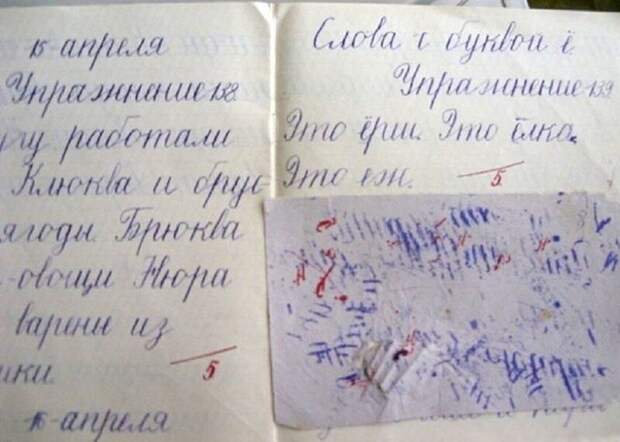 15-апреля
Упражнение-158.
угу работали
Клюква и брус-
ягоды. Брюква
-овощи. Нюра
варенье из
ики.
5
16-апреля
Слова с буквой ё.
Упражнение-159
Это ёрш. Это ёлка.
Это еж.
5